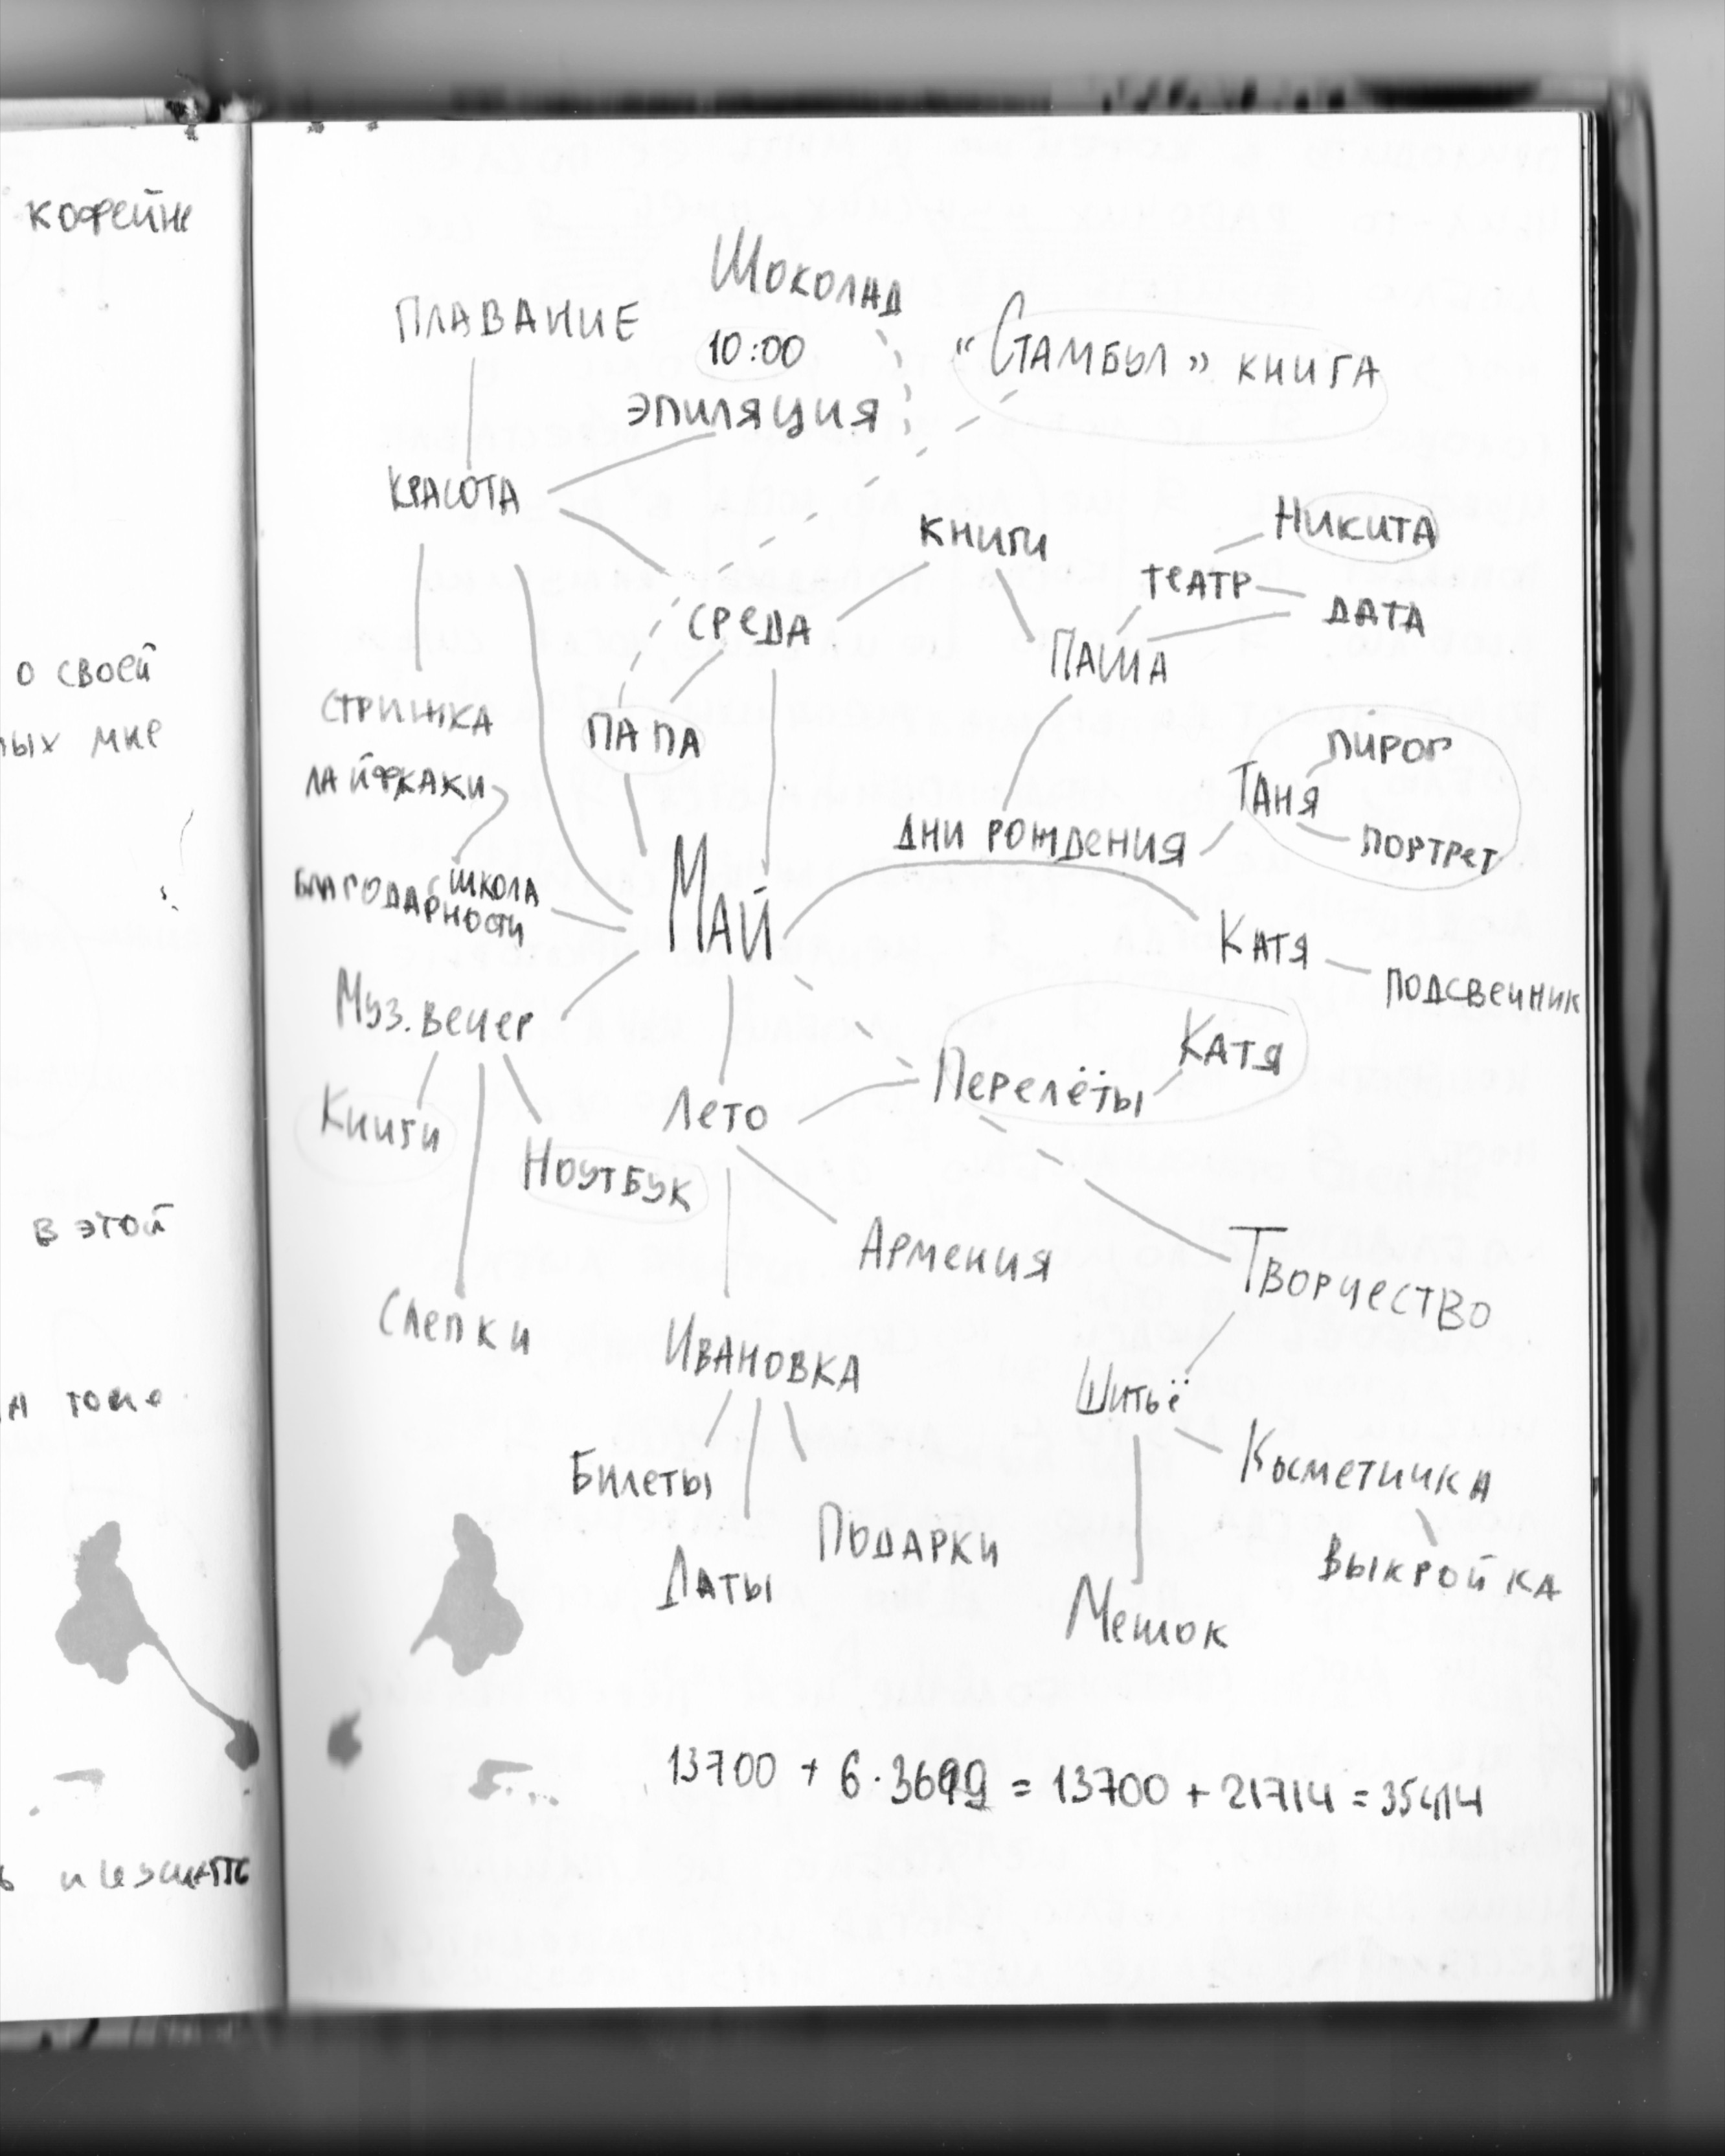 кофейне
о своей
мне
в этой
Шоколад
ПЛАВАНИЕ
10:00
"Стамбул" книга
эпиляция
КРАСОТА
книги
Никита
театр
дата
среда
Паша
стрижка
папа
пирог
лайфхаки
Таня
дни рождения
портрет
школа
благодарности
Май
Катя
подсвечник
Муз. вечер
Катя
Перелёты
Книги
Лето
Ноутбук
Армения
Творчество
Слепки
Ивановка
Шитьё
Косметичка
Билеты
Подарки
выкройка
Даты
Мешок
13700 + 6·3699 = 13700 + 21714 = 35414